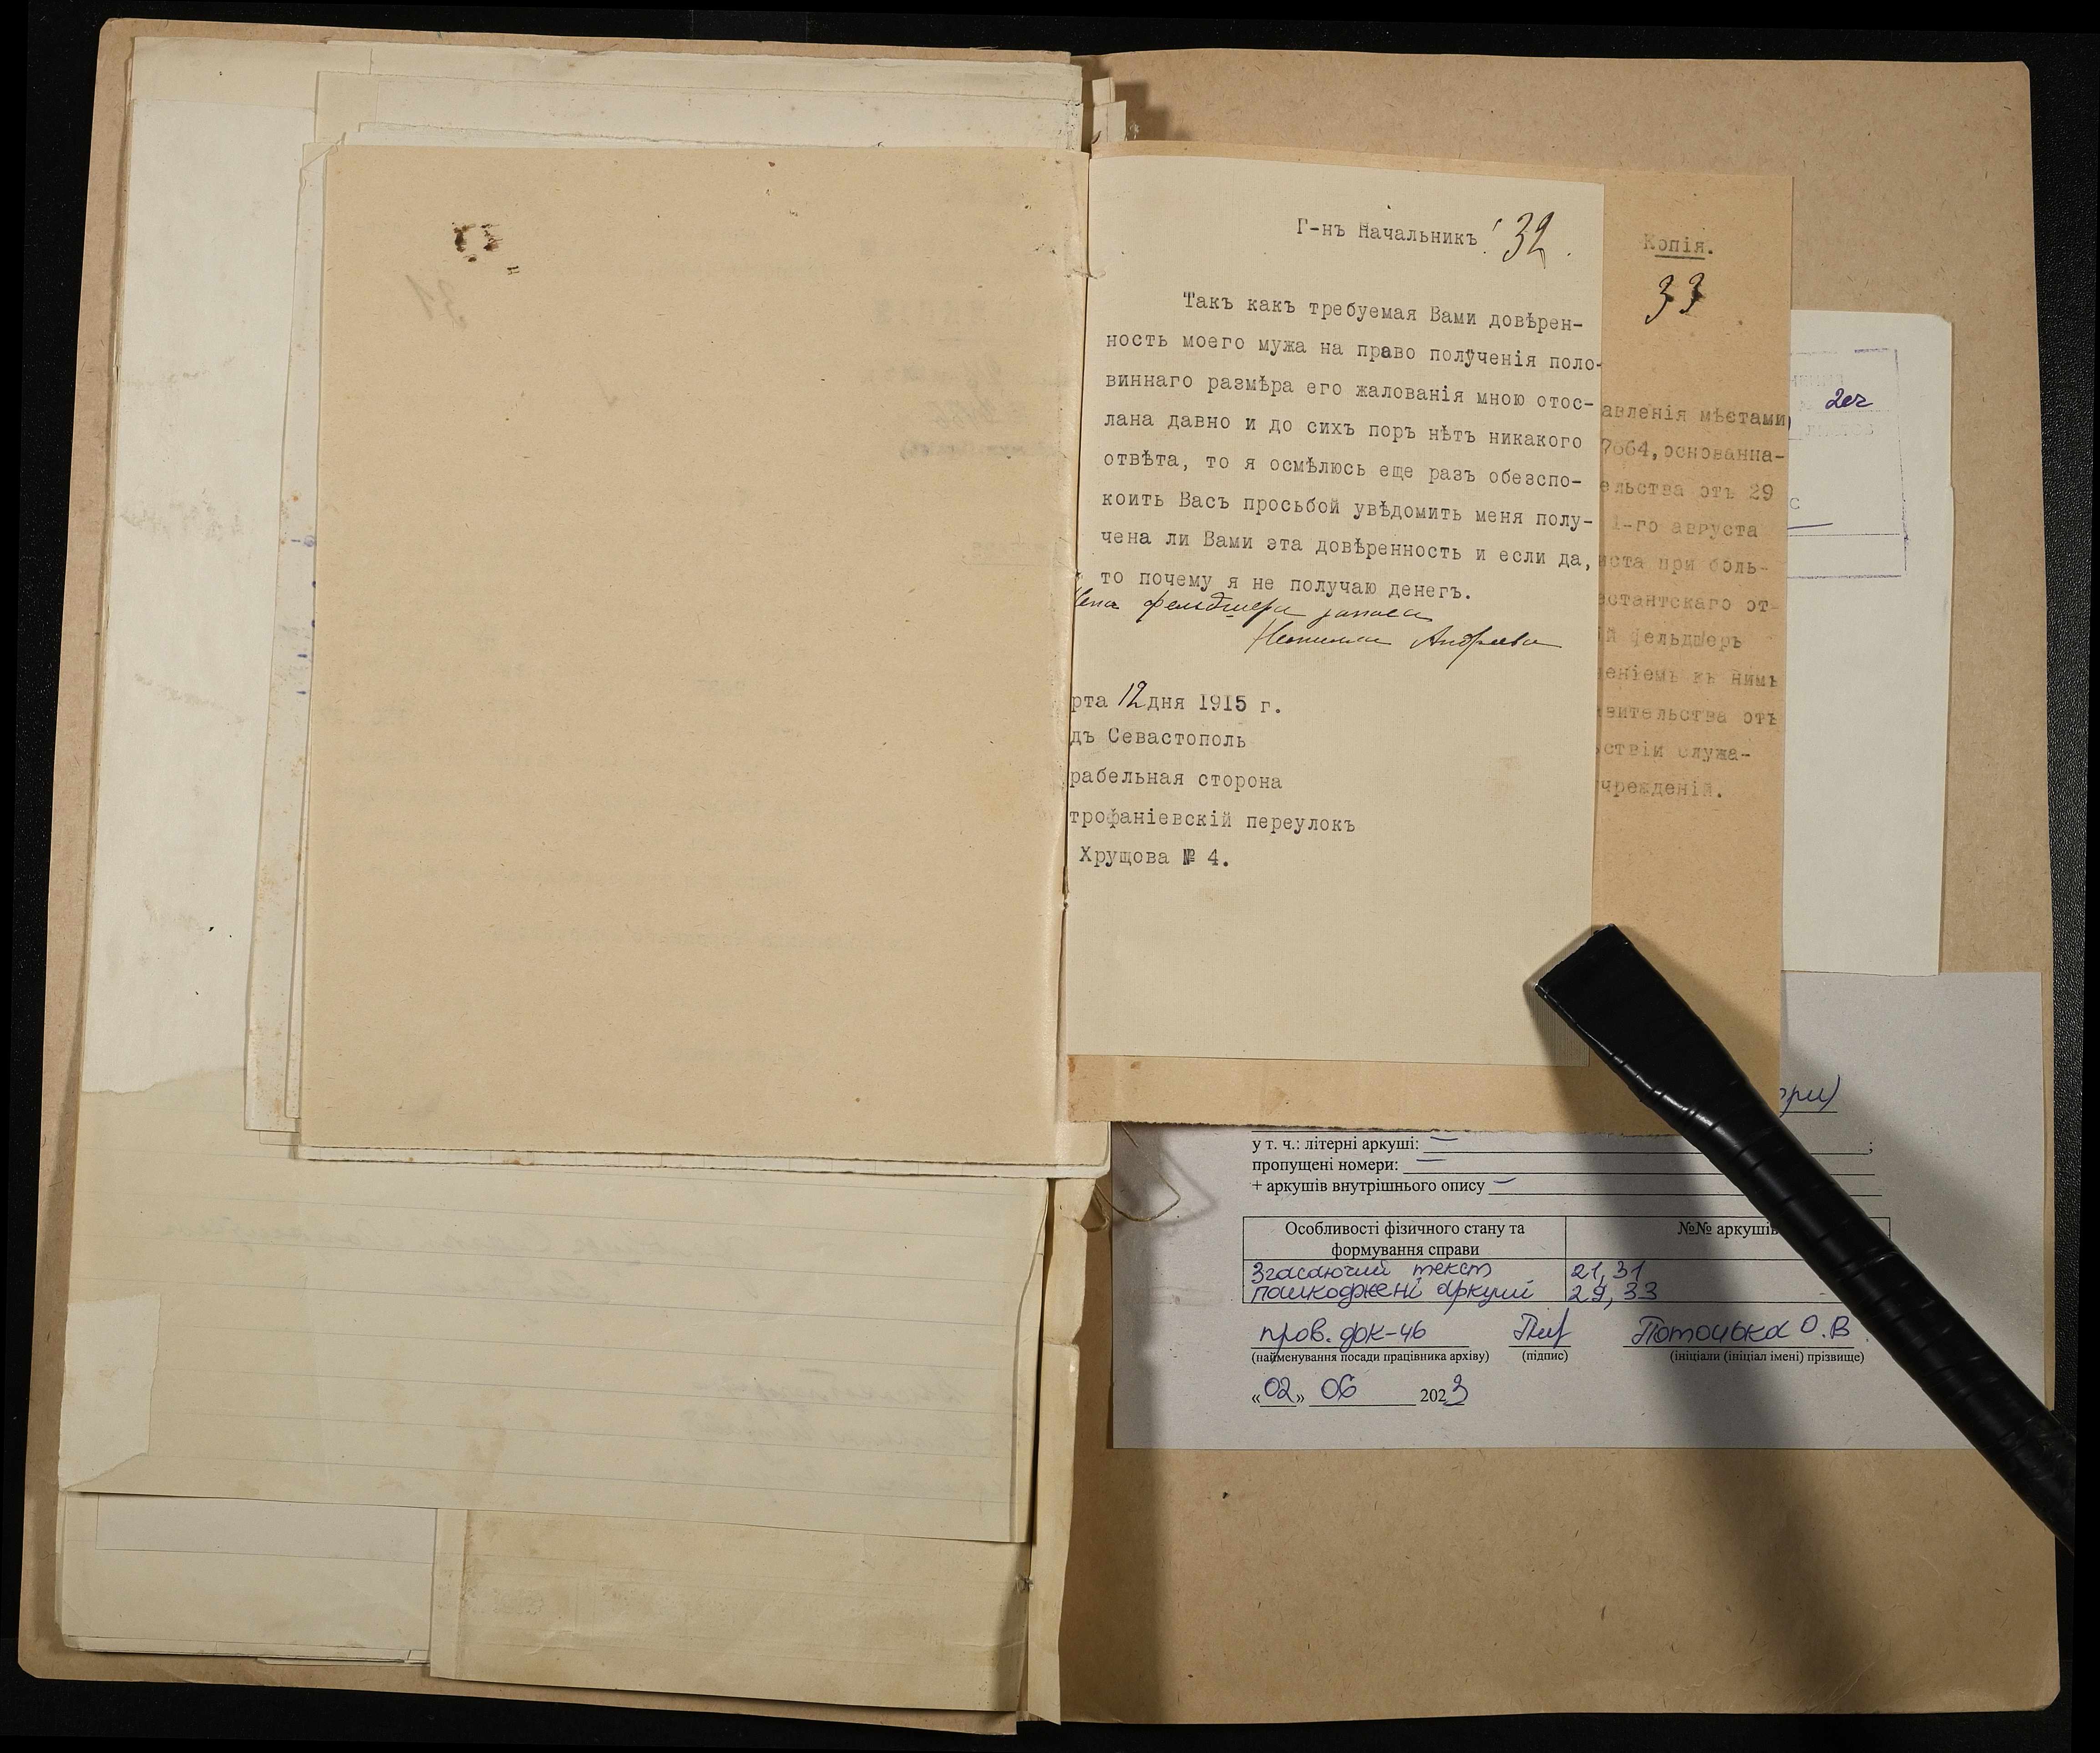 Г-нъ Начальникъ!
32.
Такъ какъ требуемая Вами довѣрен-
ность моего мужа на право полученія поло-
виннаго размѣра его жалованія мною отос-
лана давно и до сихъ поръ нѣтъ никакого
отвѣта, то я осмѣлюсь еще разъ обезспо-
коить Васъ просьбой увѣдомить меня полу-
чена ли Вами эта довѣренность и если да,
то почему я не получаю денегъ.
фельдшера запаса
Андреева
рта 12 дня 1915 г.
дъ Севастополь
рабельная сторона
трофаніевскій переулокъ
Хрущова № 4.
Копія.
33
авленія мѣстами
7664, основанна-
ельства отъ 29
1-го августа
иста при боль-
естантскаго от-
й фельдшеръ
еніемъ къ нимъ
вительства отъ
ствіи служа-
чрежденій.
2ог
ори)
у т. ч.: літерні аркуші: — ;
пропущені номери: —
+ аркушів внутрішнього опису —
Особливості фізичного стану та формування справи
№№ аркушів
Згасаючий текст 21, 31
пошкоджені аркуші 29, 33
пров. док-ч6
(найменування посади працівника архіву) (підпис) (ініціали (ініціал імені) прізвище)
«02» 06 2023
31